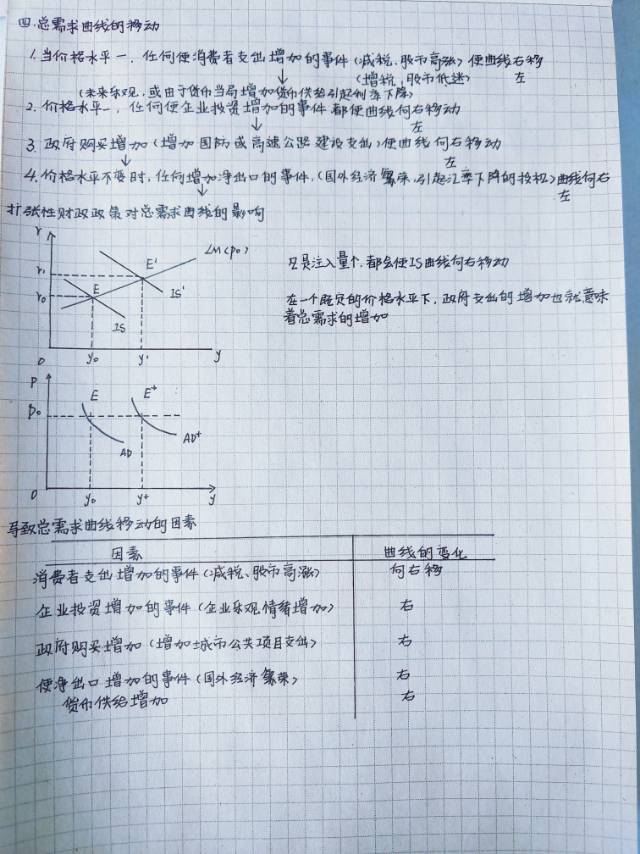 四.总需求曲线的移动
1.当价格水平一.任何使消费者支出增加的事件(减税、股市高涨)使曲线右移
↓ (增税,股市低迷) 左
(未来乐观,或由于货币当局增加货币供给引起利率下降)
2.价格水平一,任何使企业投资增加的事件都使曲线向右移动
↓ 左
3.政府购买增加(增加国防或高速公路建设支出)使曲线向右移动
↓ 左
4.价格水平不变时,任何增加净出口的事件,(国外经济繁荣,引起汇率下降的投机)曲线向右
↓ 左
扩张性财政政策对总需求曲线的影响
r
LM(P0)
E'
r1
E
r0
IS'
IS
0 y0 y' y
只是注入量个.都会使IS曲线向右移动
在一个既定的价格水平下,政府支出的增加也就意味
着总需求的增加
P
E E+
P0
AD AD+
0 y0 y+ y
导致总需求曲线移动的因素
因素 曲线的变化
消费者支出增加的事件(减税、股市高涨) 向右移
企业投资增加的事件(企业乐观情绪增加) 右
政府购买增加(增加城市公共项目支出) 右
使净出口增加的事件(国外经济繁荣) 右
货币供给增加 右